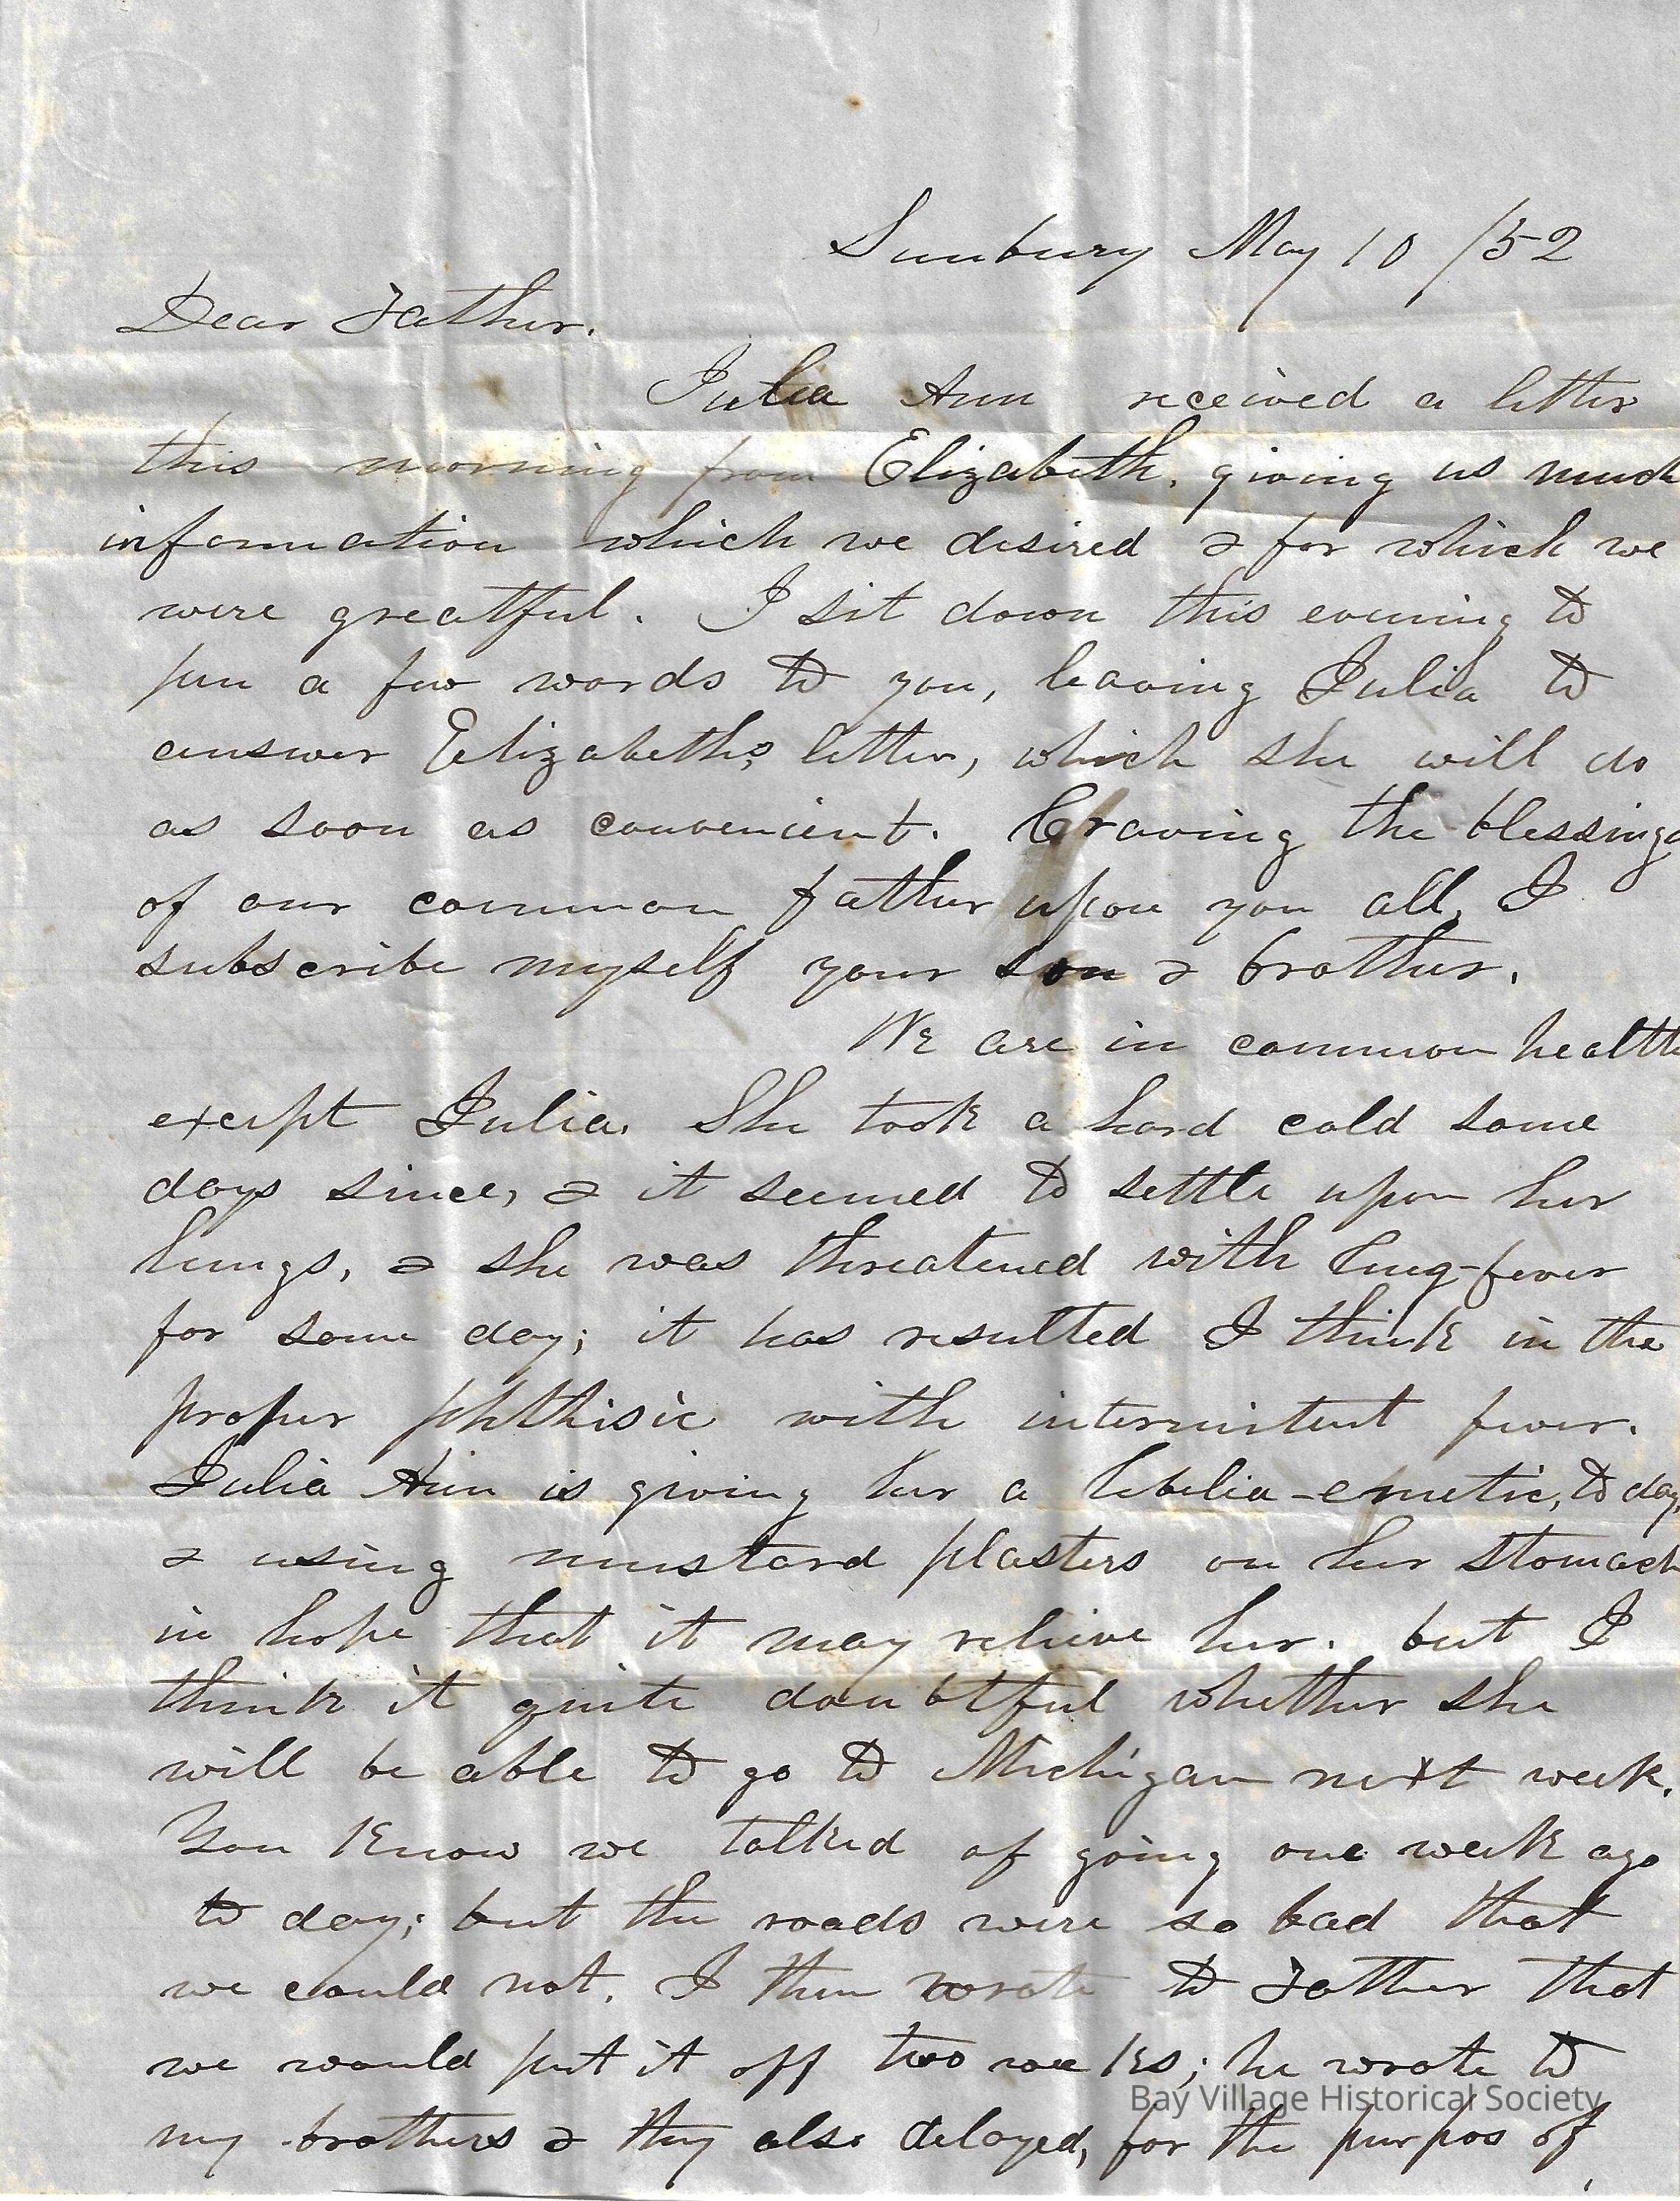 Sunbury May 10 /52
Dear Father.
Julia Ann received a letter
this morning from Elizabeth, giving us much
information which we desired & for which we
were greatful. I sit down this evening to
pen a few words to you, leaving Julia to
answer Elizabeth's letter, which she will do
as soon as convenient. Craving the blessings
of our common father upon you all, I
subscribe myself your son & brother.
We are in common health
except Julia. She took a hard cold some
days since, & it seemed to settle upon her
lungs, & she was threatened with lung-fever
for some day; it has resulted I think in the
proper phthisic with intermitent fever.
Julia Ann is giving her a lobelia-emetic, to day,
& using mustard plasters on her stomach
in hope that it may relieve her. but I
think it quite doubtful whether she
will be able to go to Michigan next week.
You know we talked of going one week ago
to day; but the roads were so bad that
we could not. I then wrote to Father that
we would put it off two weeks; he wrote to
my brothers & they also delayed, for the purpos of
Bay Village Historical Society